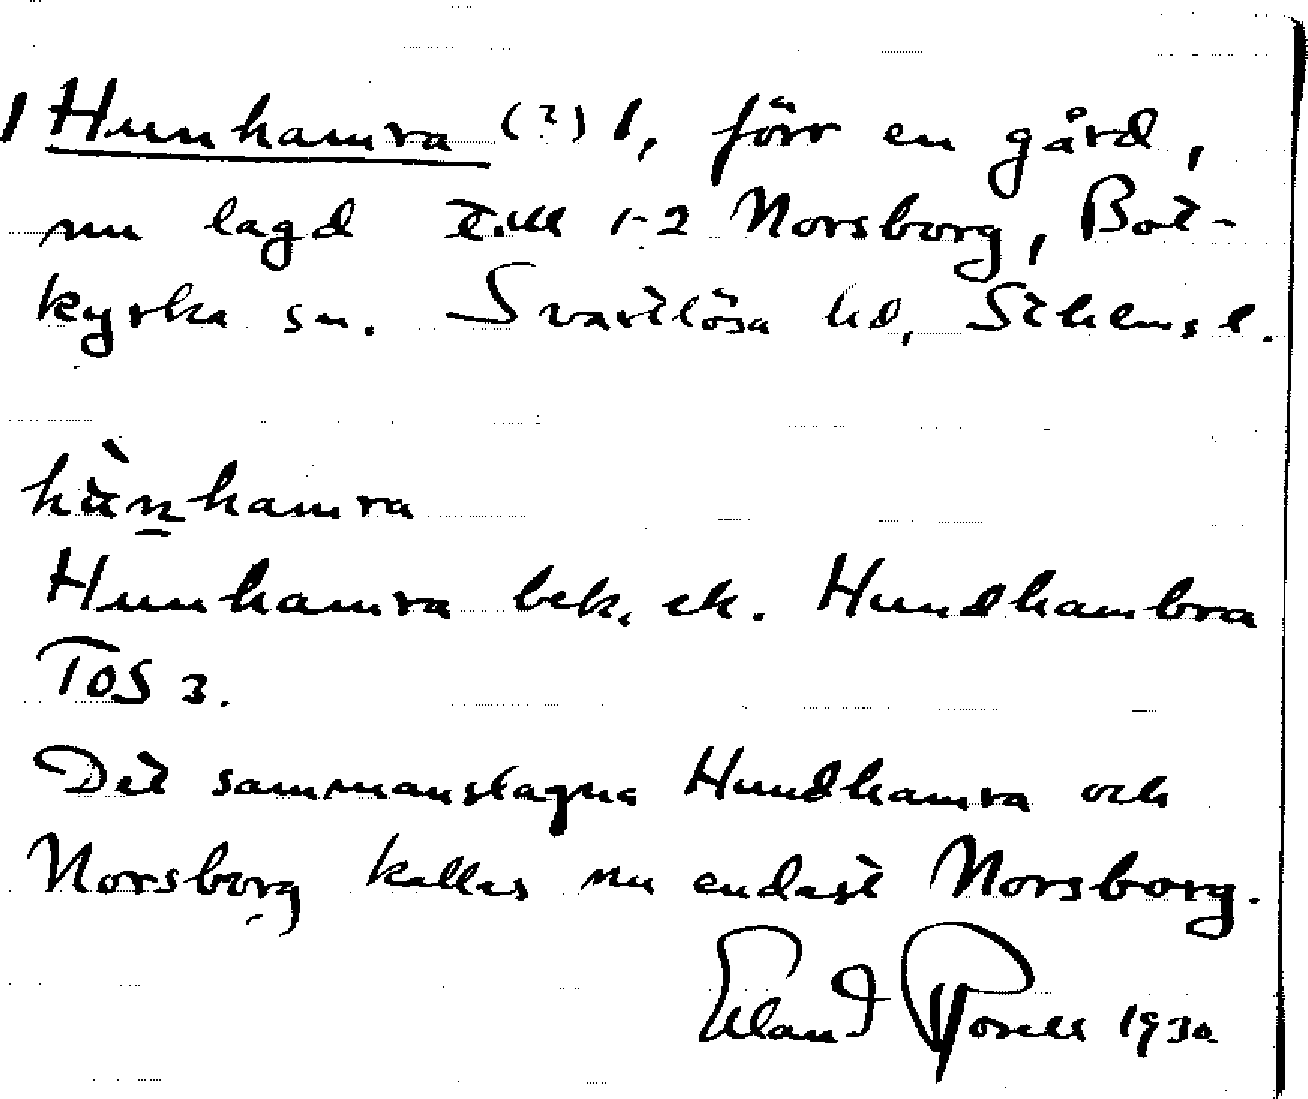 1 Hunhamra (?) 1, förr en gård,
nu lagd till 1-2 Norsborg, Bot-
kyrka sn. Svartlösa hd, Sthlms l.
hùnhamra
Hunhamra bek. ek. Hundhambra
TOS 3.
Det sammanslagna Hundhamra och
Norsborg kallas nu endast Norsborg.
Erland Rosell 1930